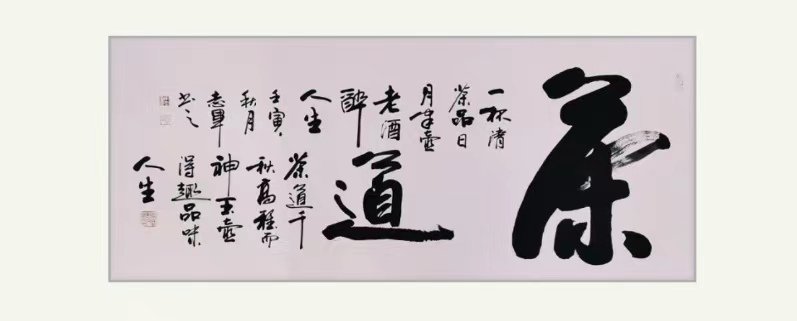 茶
道
一杯清
茶品日
月半壺
老酒
醉
人生
壬寅
秋月
志
书之
茶道千
秋高雅而
神玉壺
得趣品味
人生